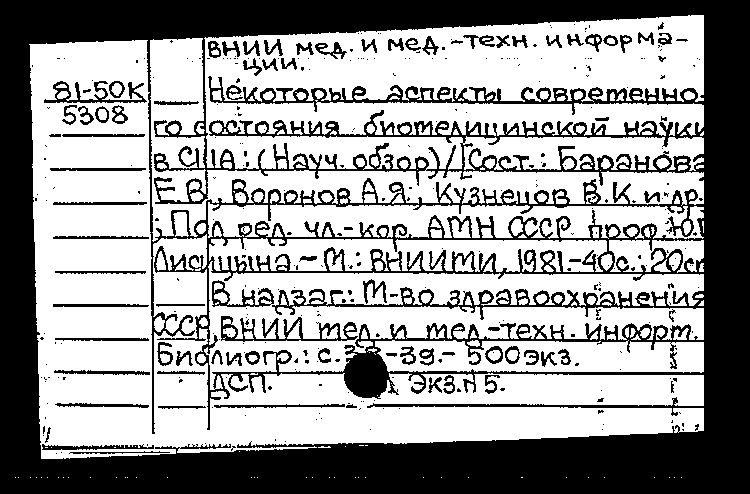 ВНИИ мед. и мед.-техн. информа-
ции.
81-50К Некоторые аспекты современно-
5308
го состояния биомедицинской науки
в США: (Науч. обзор)/[Сост.: Баранова
Е.В., Воронов А.Я., Кузнецов В.К. и др.
; Под ред. чл.-кор. АМН СССР проф. Ю.П
Лисицына.-М.: ВНИИМИ, 1981.-40с.; 20см
В надзаг.: М-во здравоохранения
СССР, ВНИИ мед. и мед.-техн. информ.
Библиогр.: с. -39.- 500экз.
ДСП. Экз.N 5.